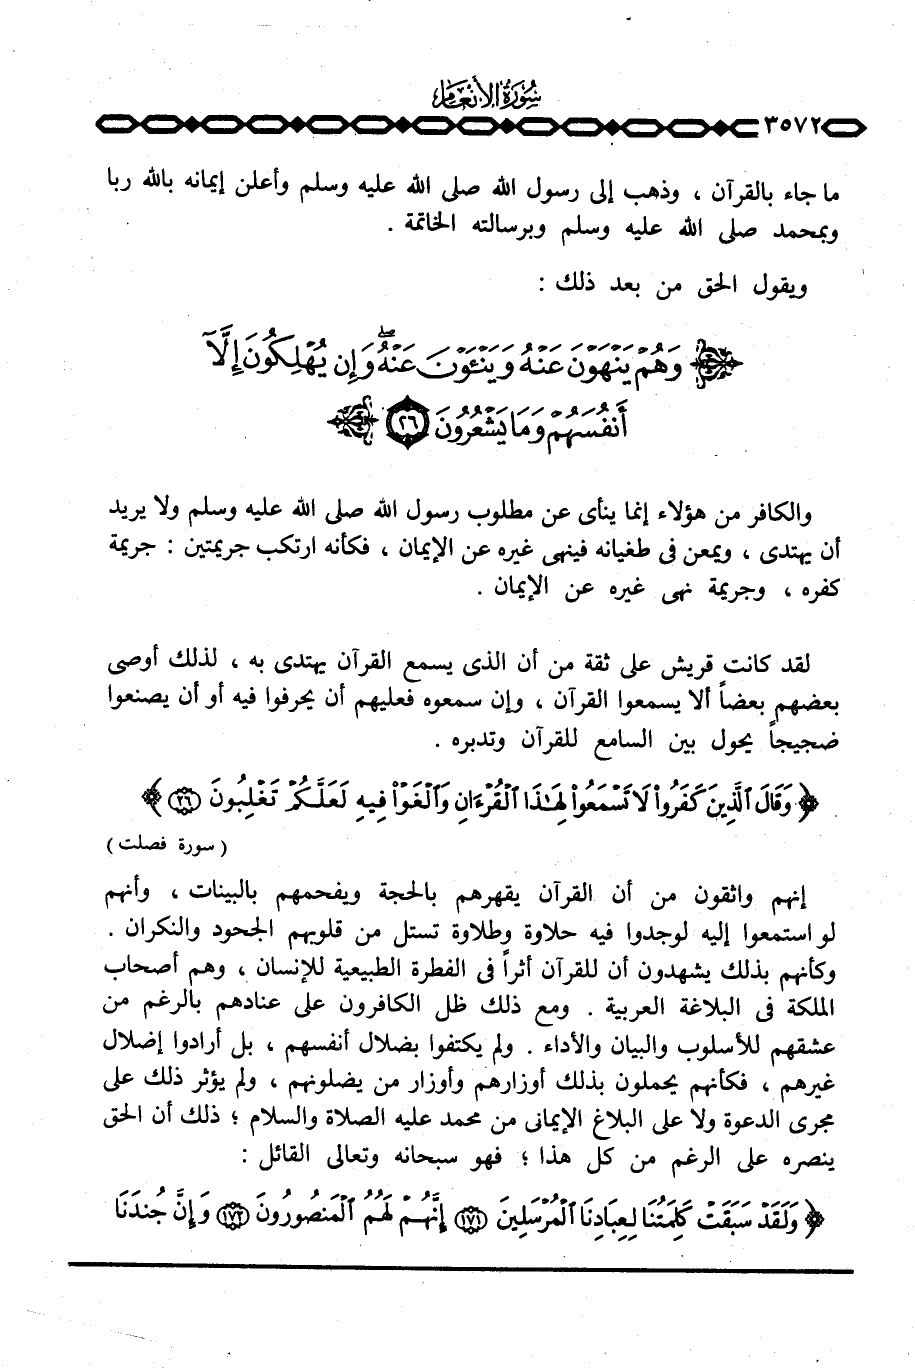 سورة الأنعام
٣٥٧٢
ما جاء بالقرآن ، وذهب إلى رسول الله صلى الله عليه وسلم وأعلن إيمانه بالله ربا
وبمحمد صلى الله عليه وسلم وبرسالته الخاتمة .
ويقول الحق من بعد ذلك :
وَهُمْ يَنْهَوْنَ عَنْهُ وَيَنْـَٔوْنَ عَنْهُ ۖ وَإِن يُهْلِكُونَ إِلَّآ
أَنفُسَهُمْ وَمَا يَشْعُرُونَ ٢٦
والكافر من هؤلاء إنما ينأى عن مطلوب رسول الله صلى الله عليه وسلم ولا يريد
أن يهتدى ، ويمعن فى طغيانه فينهى غيره عن الإيمان ، فكأنه ارتكب جريمتين : جريمة
كفره ، وجريمة نهى غيره عن الإيمان .
لقد كانت قريش على ثقة من أن الذى يسمع القرآن يهتدى به ، لذلك أوصى
بعضهم بعضاً ألا يسمعوا القرآن ، وإن سمعوه فعليهم أن يحرفوا فيه أو أن يصنعوا
ضجيجاً يحول بين السامع للقرآن وتدبره .
﴿ وَقَالَ ٱلَّذِينَ كَفَرُوا۟ لَا تَسْمَعُوا۟ لِهَـٰذَا ٱلْقُرْءَانِ وَٱلْغَوْا۟ فِيهِ لَعَلَّكُمْ تَغْلِبُونَ ٢٦ ﴾
( سورة فصلت )
إنهم واثقون من أن القرآن يقهرهم بالحجة ويفحمهم بالبينات ، وأنهم
لو استمعوا إليه لوجدوا فيه حلاوة وطلاوة تستل من قلوبهم الجحود والنكران .
وكأنهم بذلك يشهدون أن للقرآن أثراً فى الفطرة الطبيعية للإنسان ، وهم أصحاب
الملكة فى البلاغة العربية . ومع ذلك ظل الكافرون على عنادهم بالرغم من
عشقهم للأسلوب والبيان والأداء . ولم يكتفوا بضلال أنفسهم ، بل أرادوا إضلال
غيرهم ، فكأنهم يحملون بذلك أوزارهم وأوزار من يضلونهم ، ولم يؤثر ذلك على
مجرى الدعوة ولا على البلاغ الإيمانى من محمد عليه الصلاة والسلام ؛ ذلك أن الحق
ينصره على الرغم من كل هذا ؛ فهو سبحانه وتعالى القائل :
﴿ وَلَقَدْ سَبَقَتْ كَلِمَتُنَا لِعِبَادِنَا ٱلْمُرْسَلِينَ ١٧١ إِنَّهُمْ لَهُمُ ٱلْمَنصُورُونَ ١٧٢ وَإِنَّ جُندَنَا